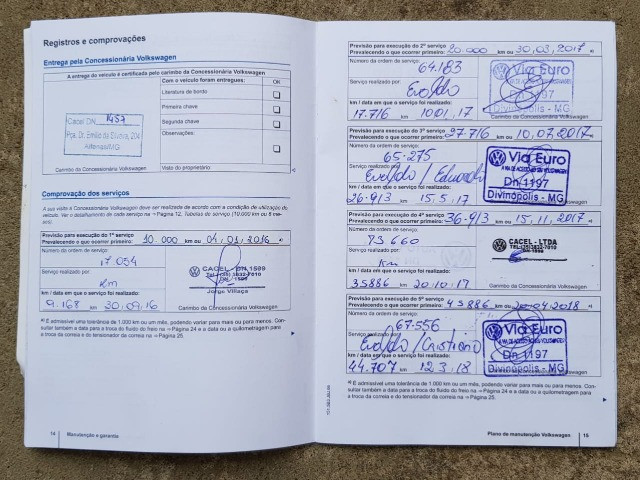 Registros e comprovações
Entrega pela Concessionária Volkswagen
A entrega do veículo é certificada pelo carimbo da Concessionária Volkswagen
Com o veículo foram entregues: OK
Literatura de bordo
Primeira chave
Segunda chave
Observações:
Cacel DN 1457
Pça. Dr. Emilio da Silveira, 204
Alfenas/MG
Carimbo da Concessionária Volkswagen
Visto do proprietário:
Comprovação dos serviços
A sua visita à Concessionária Volkswagen deve ser realizada de acordo com a condição de utilização do
veículo. Ver o detalhamento de cada serviço na ⇒ Página 12, Tabelas de serviço (10.000 km ou 6 me-
ses).
Previsão para execução do 1º serviço
Prevalecendo o que ocorrer primeiro: 10.000 km ou 04.01.2016 a)
Número da ordem de serviço:
17.054
Serviço realizado por:
Km
km / data em que o serviço foi realizado:
9.168 km 30.09.16
CACEL - DN 1599
Jorge Villaça
Carimbo da Concessionária Volkswagen
a) É admissível uma tolerância de 1.000 km ou um mês, podendo variar para mais ou para menos. Con-
sultar também a data para a troca do fluido do freio na ⇒ Página 24 e a data ou a quilometragem para
a troca da correia e do tensionador da correia na ⇒ Página 25.
14 Manutenção e garantia
Previsão para execução do 2º serviço
Prevalecendo o que ocorrer primeiro: 20.000 km ou 30.03.2017 a)
Número da ordem de serviço:
64.183
Serviço realizado por:
Evaldo
km / data em que o serviço foi realizado:
17.716 10.01.17
Via Euro
Dn 1197
Divinópolis - MG
Carimbo da Concessionária Volkswagen
Previsão para execução do 3º serviço
Prevalecendo o que ocorrer primeiro: 27.716 km ou 10.07.2017 a)
Número da ordem de serviço:
65.275
Serviço realizado por:
Evaldo / Eduardo
km / data em que o serviço foi realizado:
26.913 15.5.17
Via Euro
A VIA DE ACESSO AO SEU VOLKSWAGEN
Dn 1197
Divinópolis - MG
Previsão para execução do 4º serviço
Prevalecendo o que ocorrer primeiro: 36.913 km ou 15.11.2017 a)
Número da ordem de serviço:
73 660
Serviço realizado por:
Km
km / data em que o serviço foi realizado:
35886 20.10.17
CACEL - LTDA
Carimbo da Concessionária Volkswagen
Previsão para execução do 5º serviço
Prevalecendo o que ocorrer primeiro: 45886 km ou 20.04.2018 a)
Número da ordem de serviço:
67.556
Serviço realizado por:
Evaldo / Cristiano
km / data em que o serviço foi realizado:
44.707 12.3.18
Via Euro
A VIA DE ACESSO AO SEU VOLKSWAGEN
Dn 1197
Divinópolis - MG
a) É admissível uma tolerância de 1.000 km ou um mês, podendo variar para mais ou para menos. Con-
sultar também a data para a troca do fluido do freio na ⇒ Página 24 e a data ou a quilometragem para
a troca da correia e do tensionador da correia na ⇒ Página 25.
Plano de manutenção Volkswagen 15